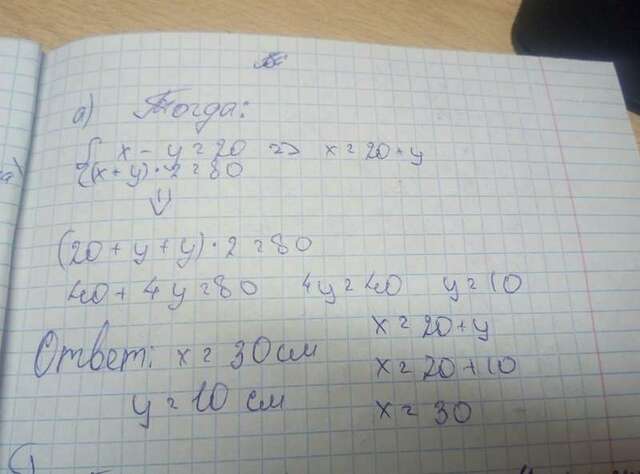 а) Тогда:
{ x - y = 20 => x = 20 + y
{ (x + y) · 2 = 80
⇓
(20 + y + y) · 2 = 80
40 + 4y = 80 4y = 40 y = 10
x = 20 + y
Ответ: x = 30 см
x = 20 + 10
y = 10 см
x = 30